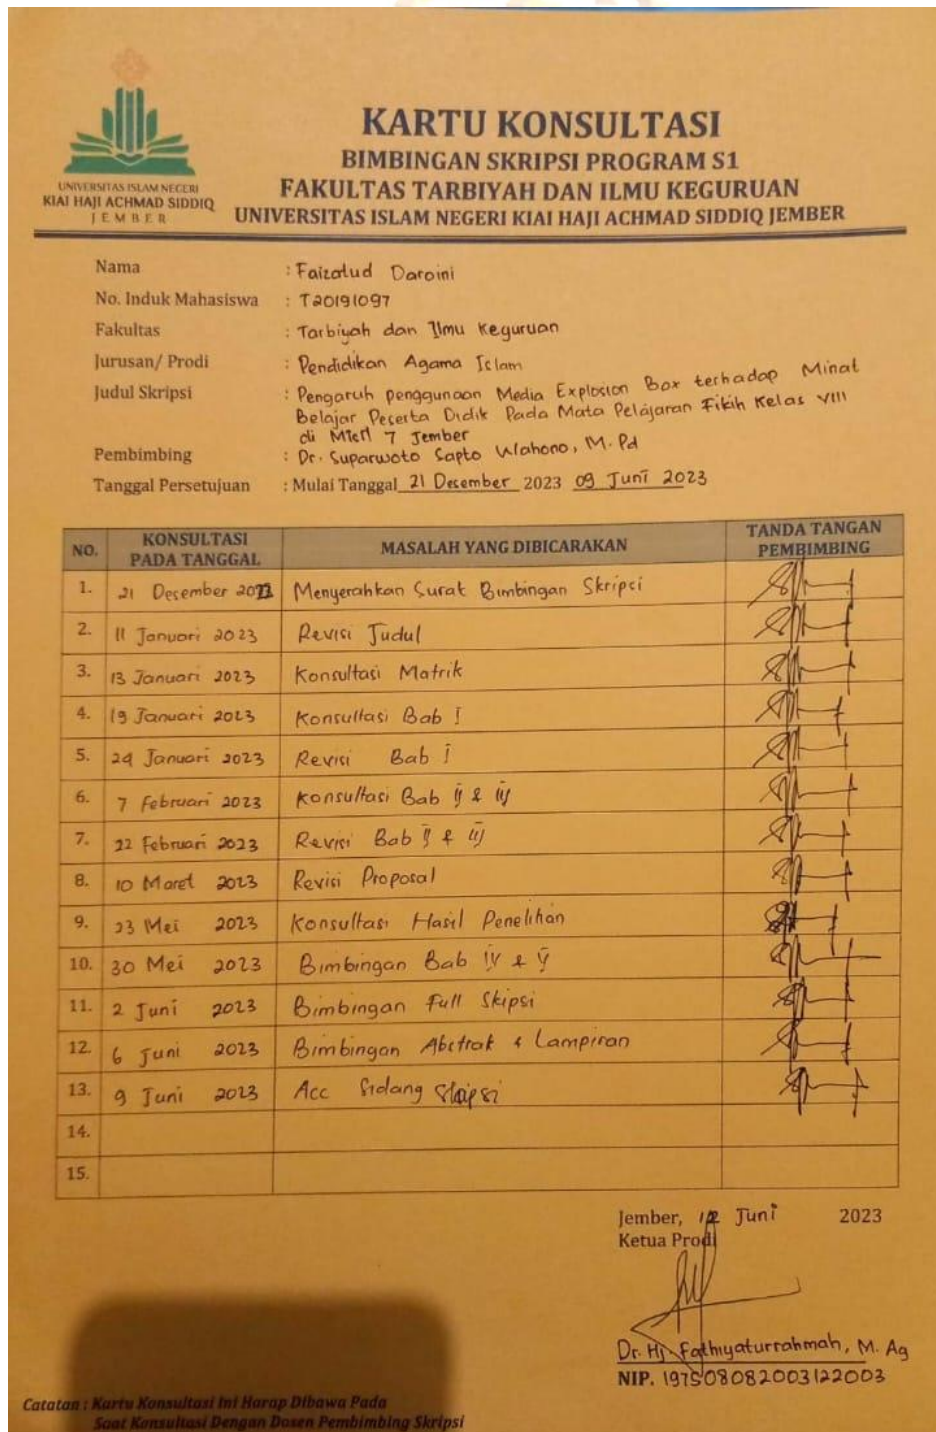 UNIVERSITAS ISLAM NEGERI
KIAI HAJI ACHMAD SIDDIQ
JEMBER
KARTU KONSULTASI
BIMBINGAN SKRIPSI PROGRAM S1
FAKULTAS TARBIYAH DAN ILMU KEGURUAN
UNIVERSITAS ISLAM NEGERI KIAI HAJI ACHMAD SIDDIQ JEMBER
Nama : Faizatud Daroini
No. Induk Mahasiswa : T20191097
Fakultas : Tarbiyah dan Ilmu Keguruan
Jurusan/ Prodi : Pendidikan Agama Islam
Judul Skripsi : Pengaruh penggunaan Media Explosion Box terhadap Minat
Belajar Peserta Didik Pada Mata Pelajaran Fikih Kelas VIII
di MTsN 7 Jember
Pembimbing : Dr. Suparwoto Sapto Wahono, M. Pd
Tanggal Persetujuan : Mulai Tanggal 21 Desember 2023 09 Juni 2023
NO. KONSULTASI PADA TANGGAL MASALAH YANG DIBICARAKAN TANDA TANGAN PEMBIMBING
1. 21 Desember 2022 Menyerahkan Surat Bimbingan Skripsi
2. 11 Januari 2023 Revisi Judul
3. 13 Januari 2023 Konsultasi Matrik
4. 19 Januari 2023 Konsultasi Bab I
5. 24 Januari 2023 Revisi Bab I
6. 7 Februari 2023 Konsultasi Bab II & III
7. 22 Februari 2023 Revisi Bab II & III
8. 10 Maret 2023 Revisi Proposal
9. 23 Mei 2023 Konsultasi Hasil Penelitian
10. 30 Mei 2023 Bimbingan Bab IV & V
11. 2 Juni 2023 Bimbingan Full Skipsi
12. 6 Juni 2023 Bimbingan Abstrak & Lampiran
13. 9 Juni 2023 Acc Sidang Skripsi
14.
15.
Jember, 12 Juni 2023
Ketua Prodi
Dr. Hj Fathiyaturrahmah, M. Ag
NIP. 197508082003122003
Catatan : Kartu Konsultasi Ini Harap Dibawa Pada
Saat Konsultasi Dengan Dosen Pembimbing Skripsi